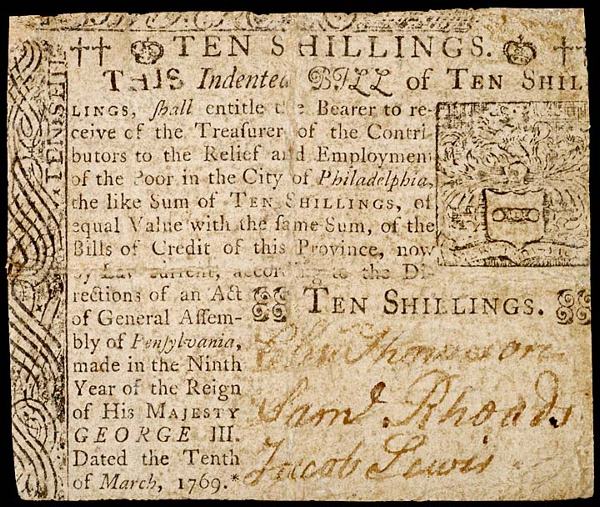 TEN SHILLINGS.
THIS Indented BILL of TEN SHIL-
LINGS, ſhall entitle the Bearer to re-
ceive of the Treaſurer of the Contri-
butors to the Relief and Employment
of the Poor in the City of Philadelphia,
the like Sum of TEN SHILLINGS, of
equal Value with the ſame Sum, of the
Bills of Credit of this Province, now
by Law current, according to the Di-
rections of an Act
of General Aſſem-
bly of Penſylvania,
made in the Ninth
Year of the Reign
of His MAJESTY
GEORGE III.
Dated the Tenth
of March, 1769.*
TEN SHILLINGS.
Saml. Rhoads
Jacob Lewis